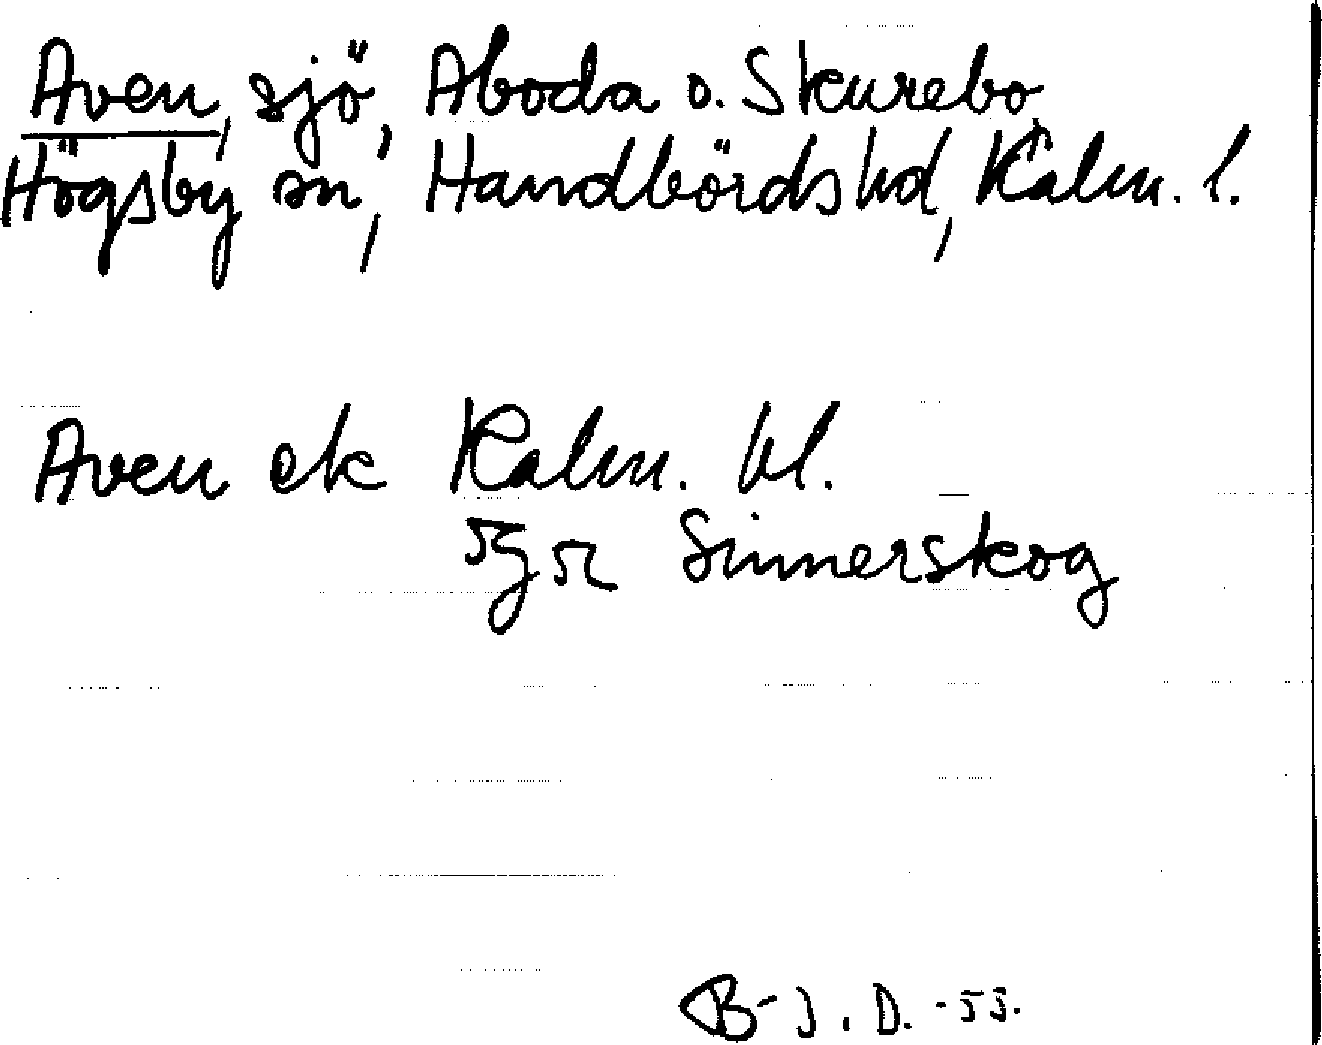 Aven, sjö, Aboda o. Skurebo,
Högsby sn, Handbörds hd, Kalm. l.
Aven ek Kalm. bl.
Sinnerskog
B-J. D. -55.